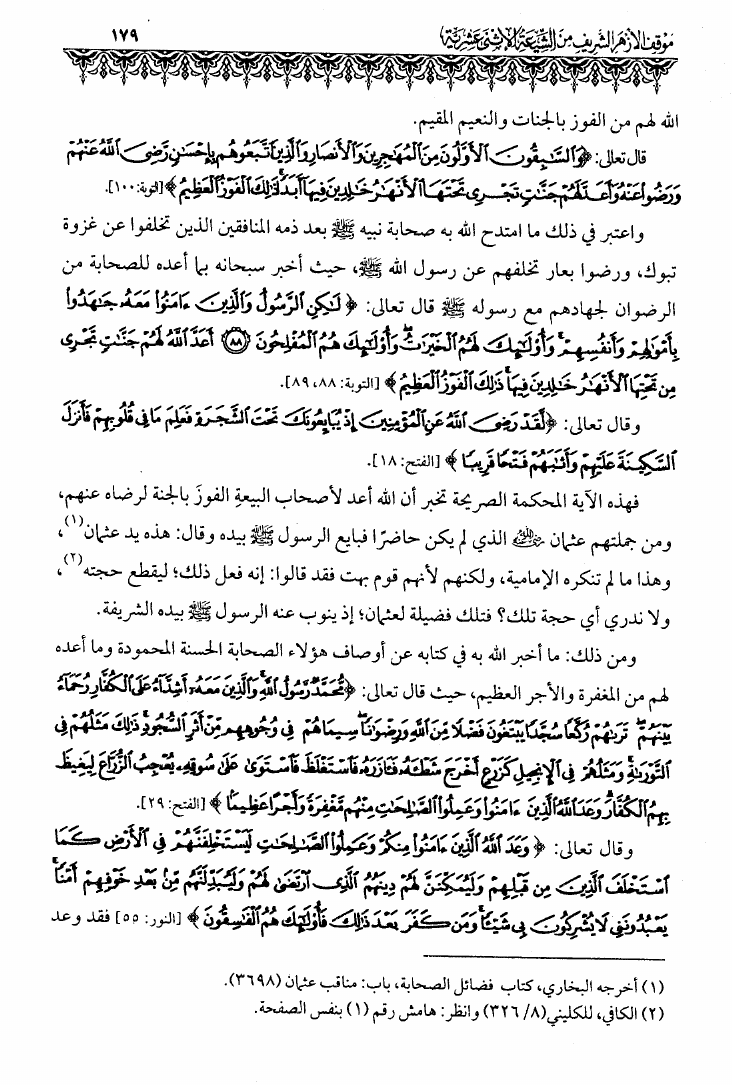 موقف الأزهر الشريف من الشيعة الاثنى عشرية
١٧٩
الله لهم من الفوز بالجنات والنعيم المقيم.
قال تعالى: ﴿وَالسَّابِقُونَ الْأَوَّلُونَ مِنَ الْمُهَاجِرِينَ وَالْأَنصَارِ وَالَّذِينَ اتَّبَعُوهُم بِإِحْسَانٍ رَّضِيَ اللَّهُ عَنْهُمْ
وَرَضُوا عَنْهُ وَأَعَدَّ لَهُمْ جَنَّاتٍ تَجْرِي تَحْتَهَا الْأَنْهَارُ خَالِدِينَ فِيهَا أَبَدًا ذَٰلِكَ الْفَوْزُ الْعَظِيمُ﴾ [التوبة: ١٠٠].
واعتبر في ذلك ما امتدح الله به صحابة نبيه ﷺ بعد ذمه المنافقين الذين تخلفوا عن غزوة
تبوك، ورضوا بعار تخلفهم عن رسول الله ﷺ، حيث أخبر سبحانه بما أعده للصحابة من
الرضوان لجهادهم مع رسوله ﷺ قال تعالى: ﴿لَٰكِنِ الرَّسُولُ وَالَّذِينَ ءَامَنُوا مَعَهُ جَاهَدُوا
بِأَمْوَالِهِمْ وَأَنفُسِهِمْ وَأُولَٰئِكَ لَهُمُ الْخَيْرَاتُ وَأُولَٰئِكَ هُمُ الْمُفْلِحُونَ (٨٨) أَعَدَّ اللَّهُ لَهُمْ جَنَّاتٍ تَجْرِي
مِن تَحْتِهَا الْأَنْهَارُ خَالِدِينَ فِيهَا ذَٰلِكَ الْفَوْزُ الْعَظِيمُ﴾ [التوبة: ٨٨، ٨٩].
وقال تعالى: ﴿لَّقَدْ رَضِيَ اللَّهُ عَنِ الْمُؤْمِنِينَ إِذْ يُبَايِعُونَكَ تَحْتَ الشَّجَرَةِ فَعَلِمَ مَا فِي قُلُوبِهِمْ فَأَنزَلَ
السَّكِينَةَ عَلَيْهِمْ وَأَثَابَهُمْ فَتْحًا قَرِيبًا﴾ [الفتح: ١٨].
فهذه الآية المحكمة الصريحة تخبر أن الله أعد لأصحاب البيعةِ الفوزَ بالجنة لرضاه عنهم،
ومن جملتهم عثمان رضي الله عنه الذي لم يكن حاضرًا فبايع الرسول ﷺ بيده وقال: هذه يد عثمان(١)،
وهذا ما لم تنكره الإمامية، ولكنهم لأنهم قوم بهت فقد قالوا: إنه فعل ذلك؛ ليقطع حجته(٢)،
ولا ندري أي حجة تلك؟ فتلك فضيلة لعثمان؛ إذ ينوب عنه الرسول ﷺ بيده الشريفة.
ومن ذلك: ما أخبر الله به في كتابه عن أوصاف هؤلاء الصحابة الحسنة المحمودة وما أعده
لهم من المغفرة والأجر العظيم، حيث قال تعالى: ﴿مُّحَمَّدٌ رَّسُولُ اللَّهِ وَالَّذِينَ مَعَهُ أَشِدَّاءُ عَلَى الْكُفَّارِ رُحَمَاءُ
بَيْنَهُمْ تَرَاهُمْ رُكَّعًا سُجَّدًا يَبْتَغُونَ فَضْلًا مِّنَ اللَّهِ وَرِضْوَانًا سِيمَاهُمْ فِي وُجُوهِهِم مِّنْ أَثَرِ السُّجُودِ ذَٰلِكَ مَثَلُهُمْ فِي
التَّوْرَاةِ وَمَثَلُهُمْ فِي الْإِنجِيلِ كَزَرْعٍ أَخْرَجَ شَطْأَهُ فَآزَرَهُ فَاسْتَغْلَظَ فَاسْتَوَىٰ عَلَىٰ سُوقِهِ يُعْجِبُ الزُّرَّاعَ لِيَغِيظَ
بِهِمُ الْكُفَّارَ وَعَدَ اللَّهُ الَّذِينَ ءَامَنُوا وَعَمِلُوا الصَّالِحَاتِ مِنْهُم مَّغْفِرَةً وَأَجْرًا عَظِيمًا﴾ [الفتح: ٢٩].
وقال تعالى: ﴿وَعَدَ اللَّهُ الَّذِينَ ءَامَنُوا مِنكُمْ وَعَمِلُوا الصَّالِحَاتِ لَيَسْتَخْلِفَنَّهُمْ فِي الْأَرْضِ كَمَا
اسْتَخْلَفَ الَّذِينَ مِن قَبْلِهِمْ وَلَيُمَكِّنَنَّ لَهُمْ دِينَهُمُ الَّذِي ارْتَضَىٰ لَهُمْ وَلَيُبَدِّلَنَّهُم مِّن بَعْدِ خَوْفِهِمْ أَمْنًا
يَعْبُدُونَنِي لَا يُشْرِكُونَ بِي شَيْئًا وَمَن كَفَرَ بَعْدَ ذَٰلِكَ فَأُولَٰئِكَ هُمُ الْفَاسِقُونَ﴾ [النور: ٥٥] فقد وعد
(١) أخرجه البخاري، كتاب فضائل الصحابة، باب: مناقب عثمان (٣٦٩٨).
(٢) الكافي، للكليني (٨/ ٣٢٦) وانظر: هامش رقم (١) بنفس الصفحة.